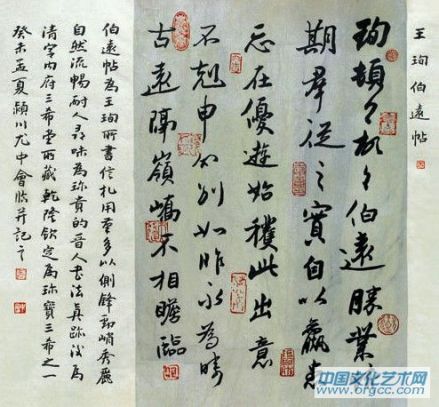 王珣伯遠帖
珣頓〻首〻伯遠勝業
期羣從之寶自以羸患
志在優遊始獲此出意
不剋申分別如昨永為疇
古遠隔嶺嶠不相瞻臨
伯遠帖為王珣所書信札用筆多以側鋒勁峭秀麗
自然流暢耐人尋味為珍貴的晉人書法真跡後為
清宮內府三希堂所藏乾隆欽定為珍寶三希之一
癸未孟夏潁川尤中會臨并記之
中国文化艺术网
www.orgcc.com